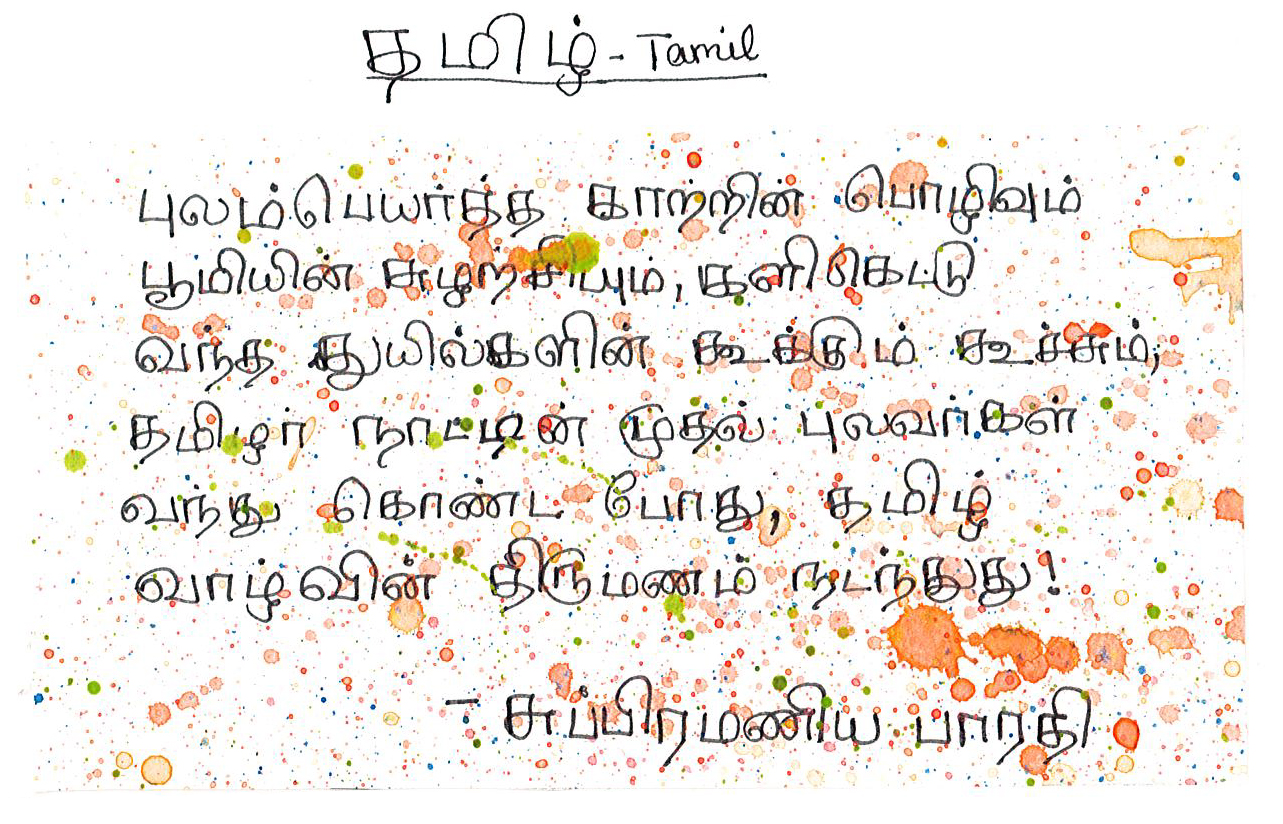 தமிழ் - Tamil
புலம்பெயர்த்த காற்றின் பொழிவும்
பூமியின் சுழற்சியும், களிகெட்டு
வந்த குயில்களின் கூக்கும் கூச்சும்,
தமிழர் நாட்டின் முதல் புலவர்கள்
வந்து கொண்ட போது, தமிழ்
வாழ்வின் திருமணம் நடந்துது!
- சுப்பிரமணிய பாரதி